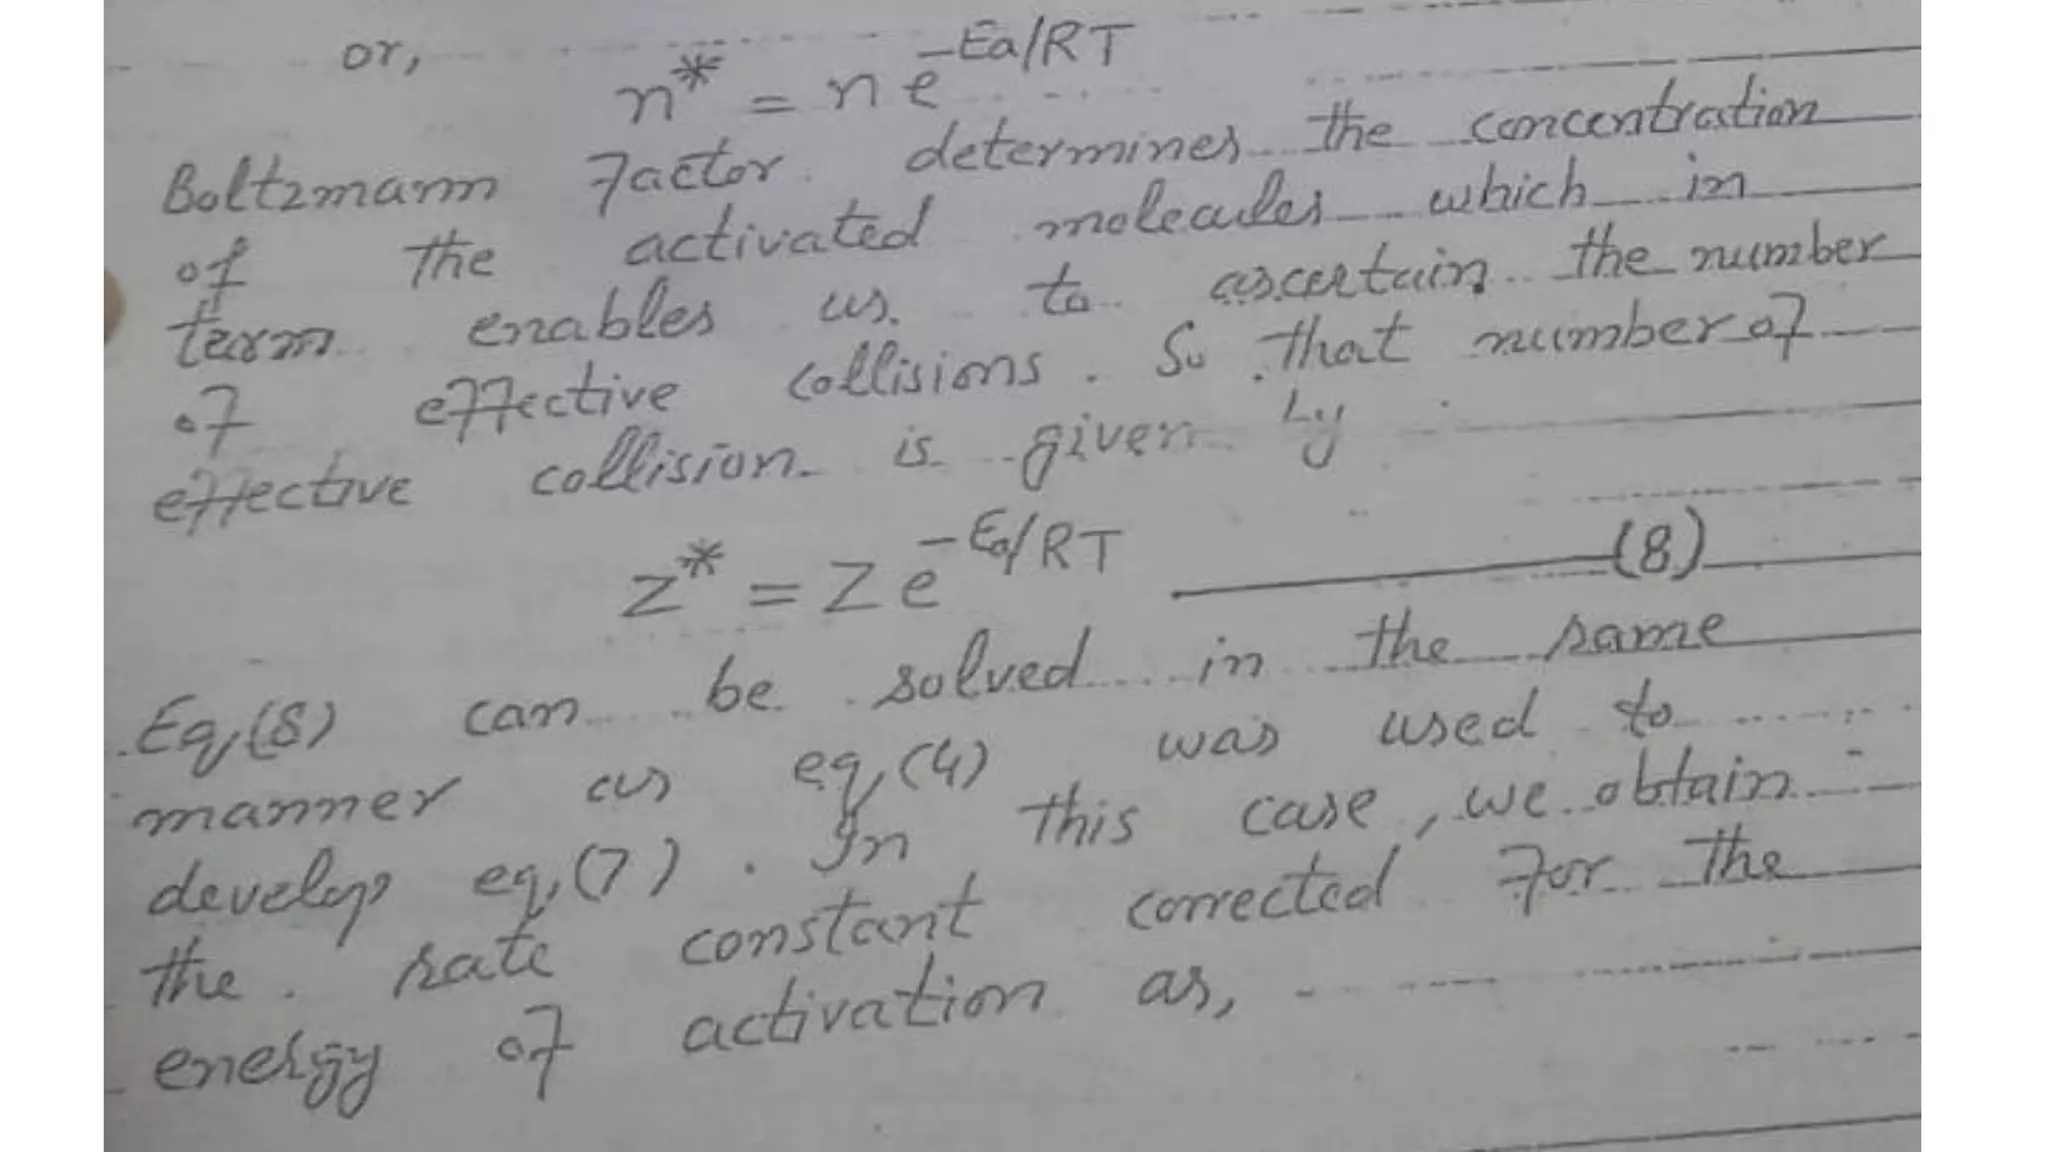 or,
n* = n e^-Ea/RT
Boltzmann Factor determines the concentration
of the activated molecules which in
term enables us to ascertain the number
of effective collisions. So that number of
effective collision is given by
Z* = Z e^-Ea/RT ———(8)
Eq,(8) can be solved in the same
manner as eq,(4) was used to
develop eq,(7). In this case, we obtain
the rate constant corrected for the
energy of activation as,